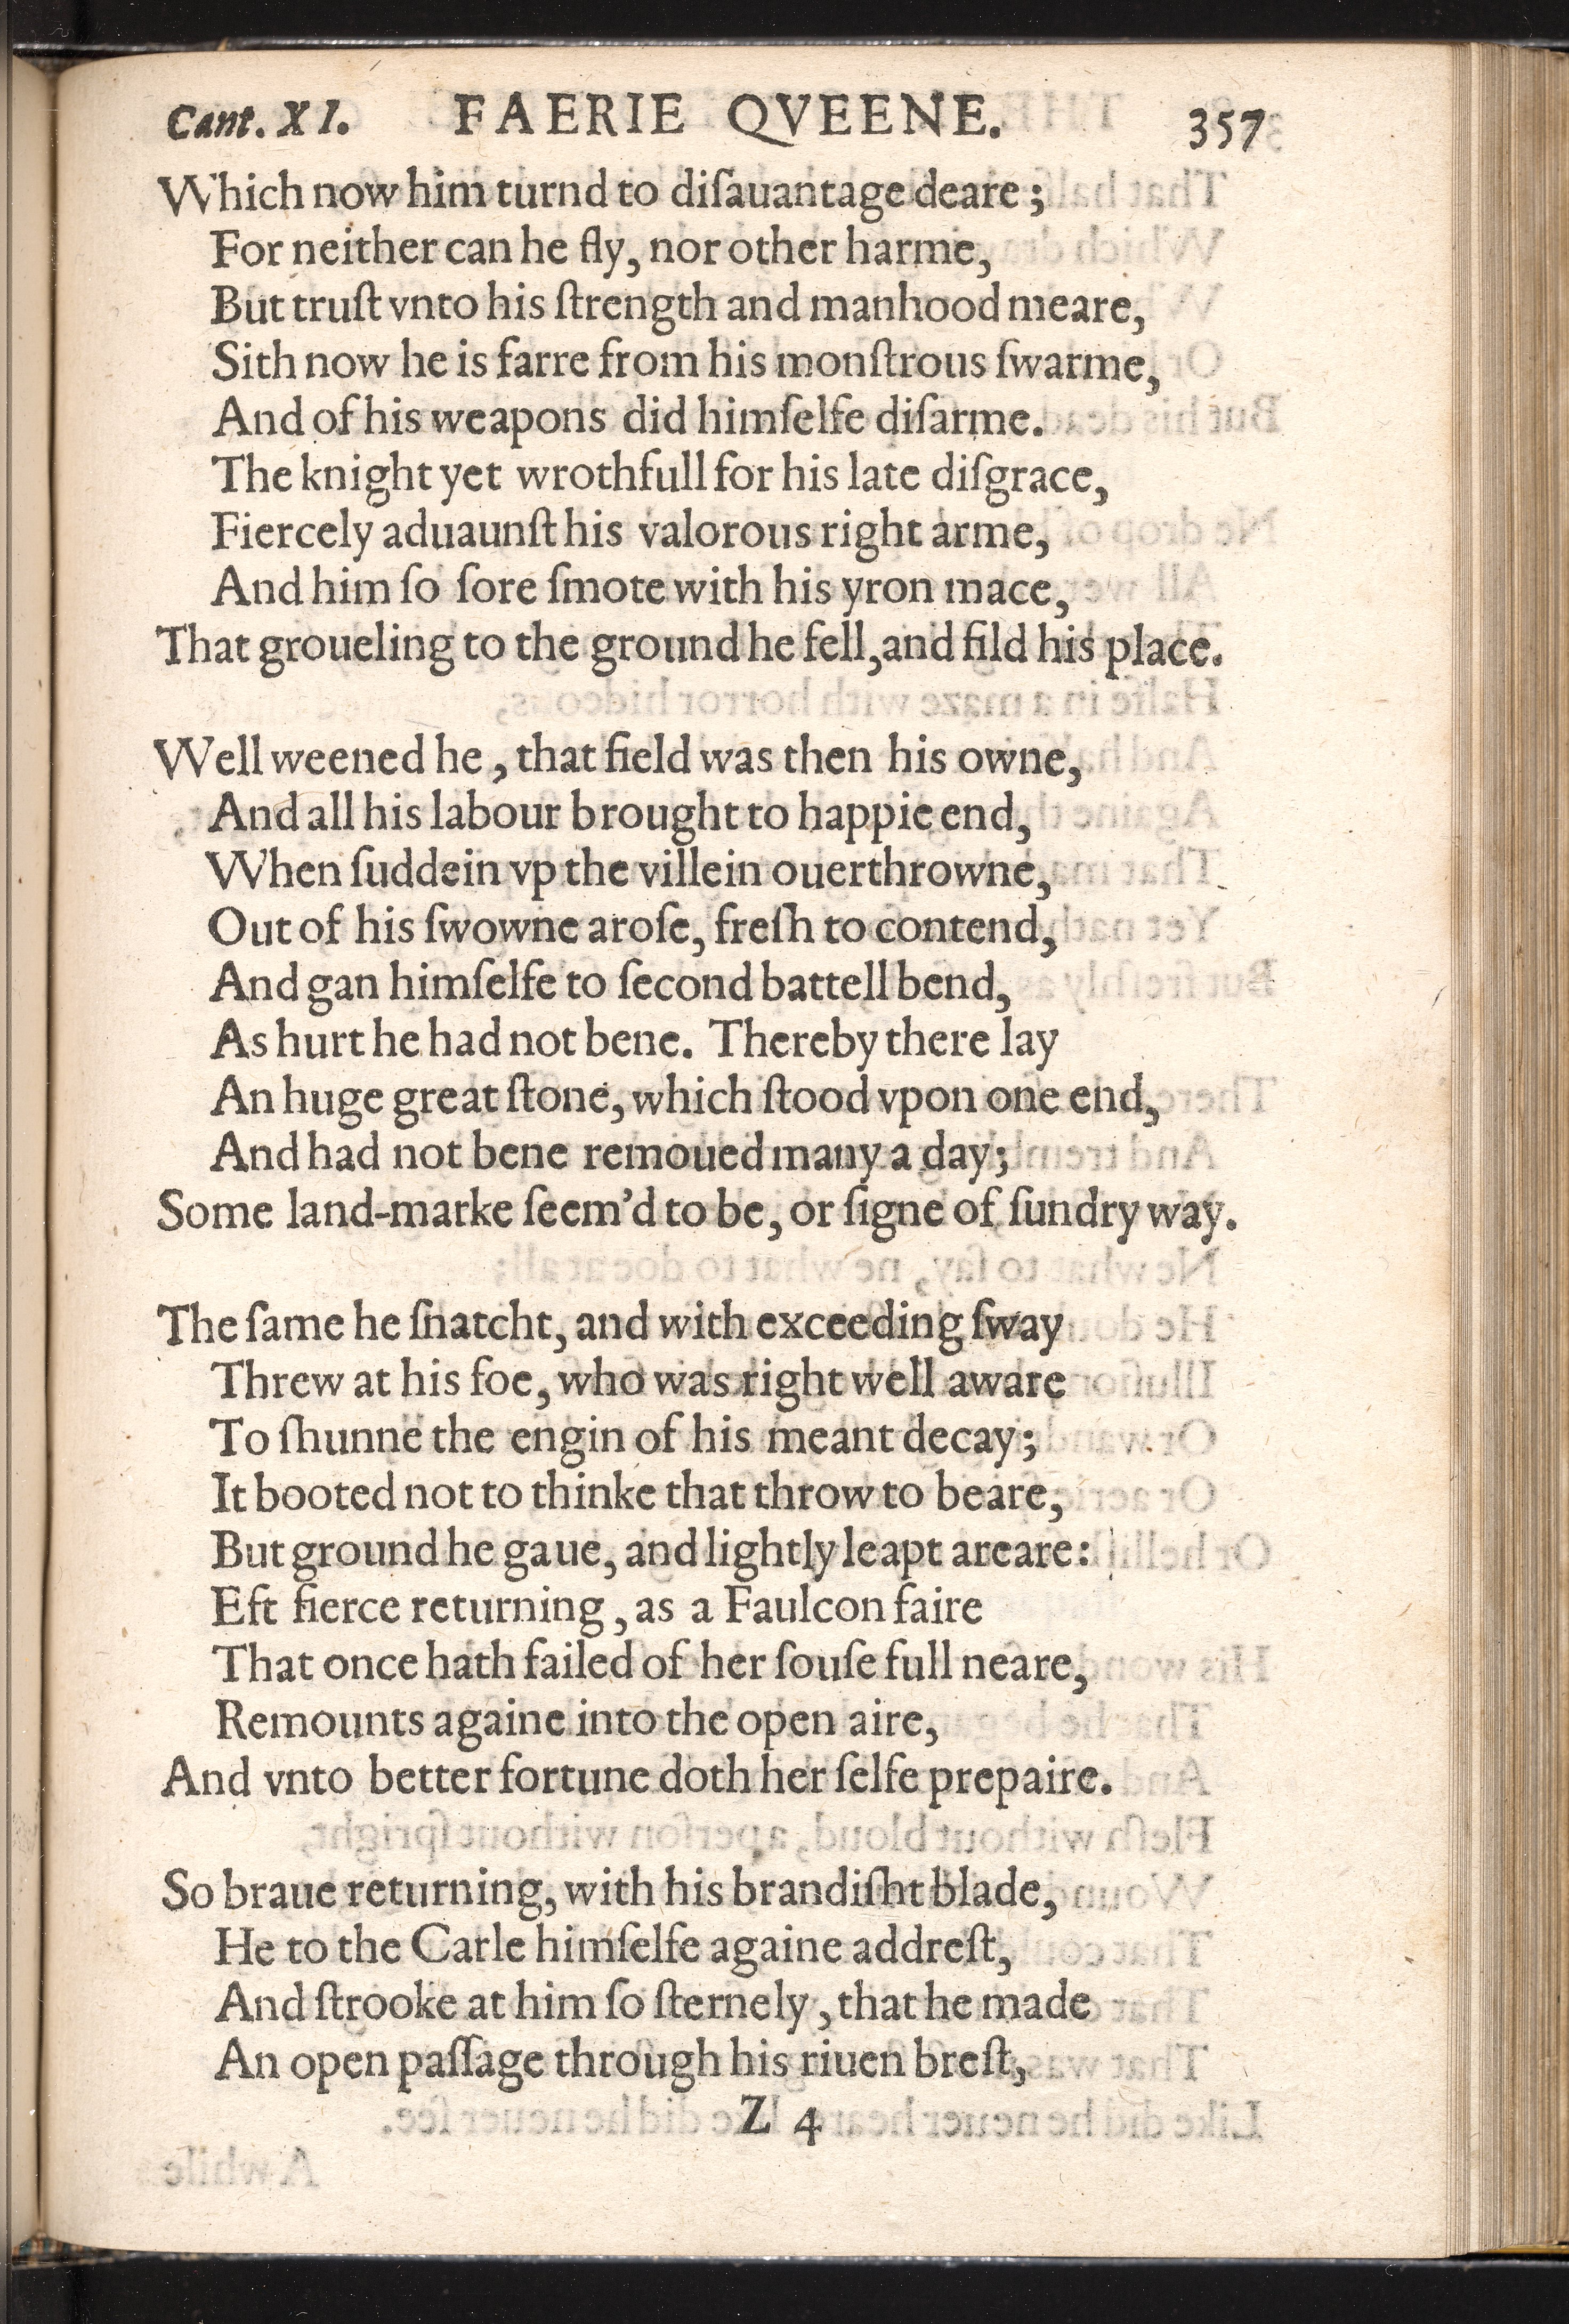 Cant. XI. FAERIE QVEENE. 357
Which now him turnd to diſauantage deare;
For neither can he fly, nor other harme,
But truſt vnto his ſtrength and manhood meare,
Sith now he is farre from his monſtrous ſwarme,
And of his weapons did himſelfe diſarme.
The knight yet wrothfull for his late diſgrace,
Fiercely aduaunſt his valorous right arme,
And him ſo ſore ſmote with his yron mace,
That groueling to the ground he fell, and fild his place.
Well weened he, that field was then his owne,
And all his labour brought to happie end,
When ſuddein vp the villein ouerthrowne,
Out of his ſwowne aroſe, freſh to contend,
And gan himſelfe to ſecond battell bend,
As hurt he had not bene. Thereby there lay
An huge great ſtone, which ſtood vpon one end,
And had not bene remoued many a day;
Some land-marke ſeem'd to be, or ſigne of ſundry way.
The ſame he ſnatcht, and with exceeding ſway
Threw at his foe, who was right well aware
To ſhunne the engin of his meant decay;
It booted not to thinke that throw to beare,
But ground he gaue, and lightly leapt areare:
Eft fierce returning, as a Faulcon faire
That once hath failed of her ſouſe full neare,
Remounts againe into the open aire,
And vnto better fortune doth her ſelfe prepaire.
So braue returning, with his brandiſht blade,
He to the Carle himſelfe againe addreſt,
And ſtrooke at him ſo ſternely, that he made
An open paſſage through his riuen breſt,
Z 4